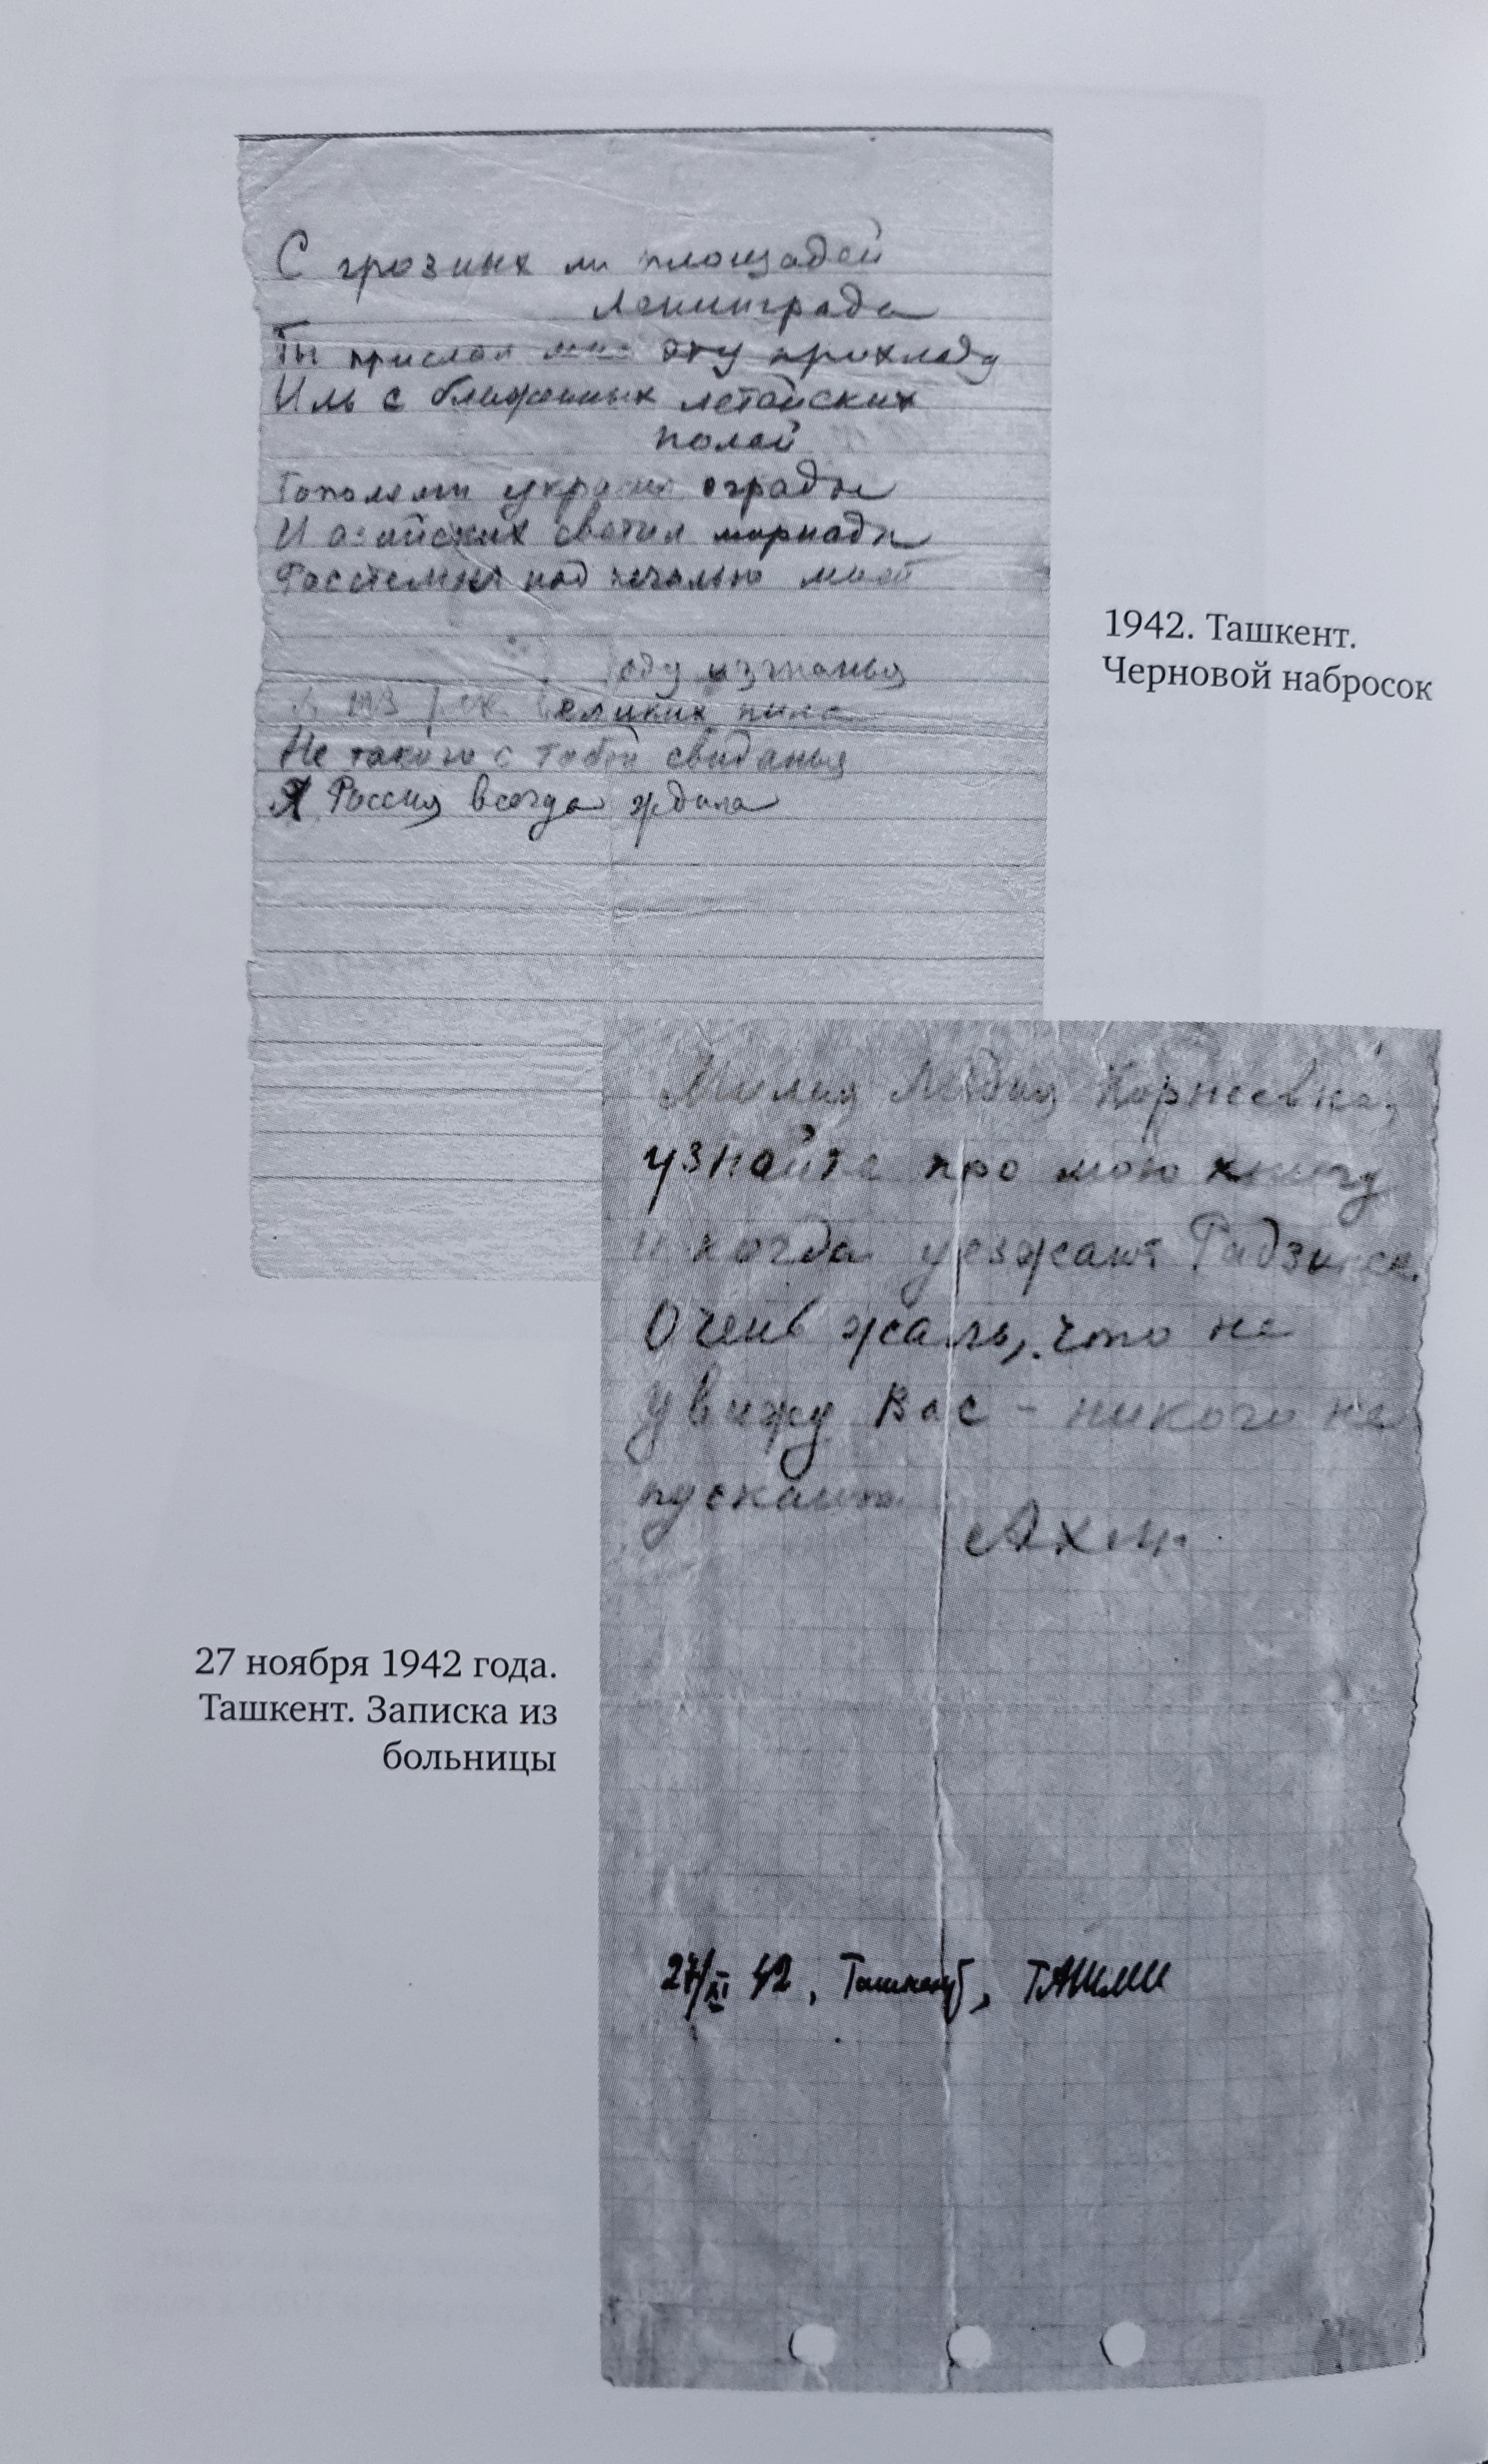 С грозных ли площадей
Ленинграда
Ты прислал мне эту прохладу
Иль с блаженных летейских
полей
Тополями украсил ограды
И азийских светил мириады
Расстелил над печалью моей
изгнанья
великих
Не такого с тобой свиданья
Я Россия всегда ждала
1942. Ташкент.
Черновой набросок
Милая Лидия Корнеевна,
узнайте про мою книгу
и когда уезжают Радзинск.
Очень жаль, что не
увижу Вас – никого не
пускают.
Ахм.
27 ноября 1942 года.
Ташкент. Записка из
больницы
27/XI 42, Ташкент, ТАШМИ